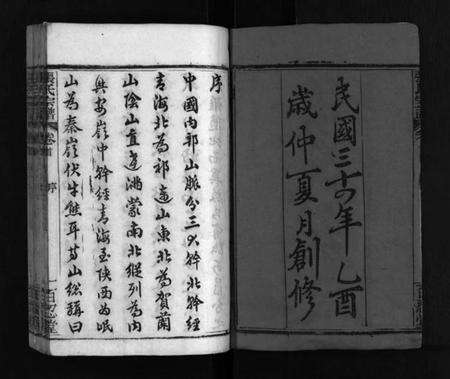 民國三十四年乙酉
歲仲夏月創修
序
中國内部山脈分三大幹北幹經
青海北為祁連山東北為賀蘭
山陰山直達滿蒙南北縱列為内
興安嶺中幹經青海至陝西為岷
山為秦嶺伏牛熊耳等山總謂曰
張氏宗譜 卷首 序